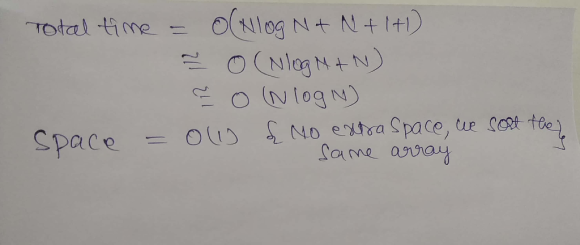 Total time = O(NlogN + N + 1+1)
≅ O(NlogN+N)
≅ O(NlogN)
Space = O(1) { No extra space, we sort the }
same array